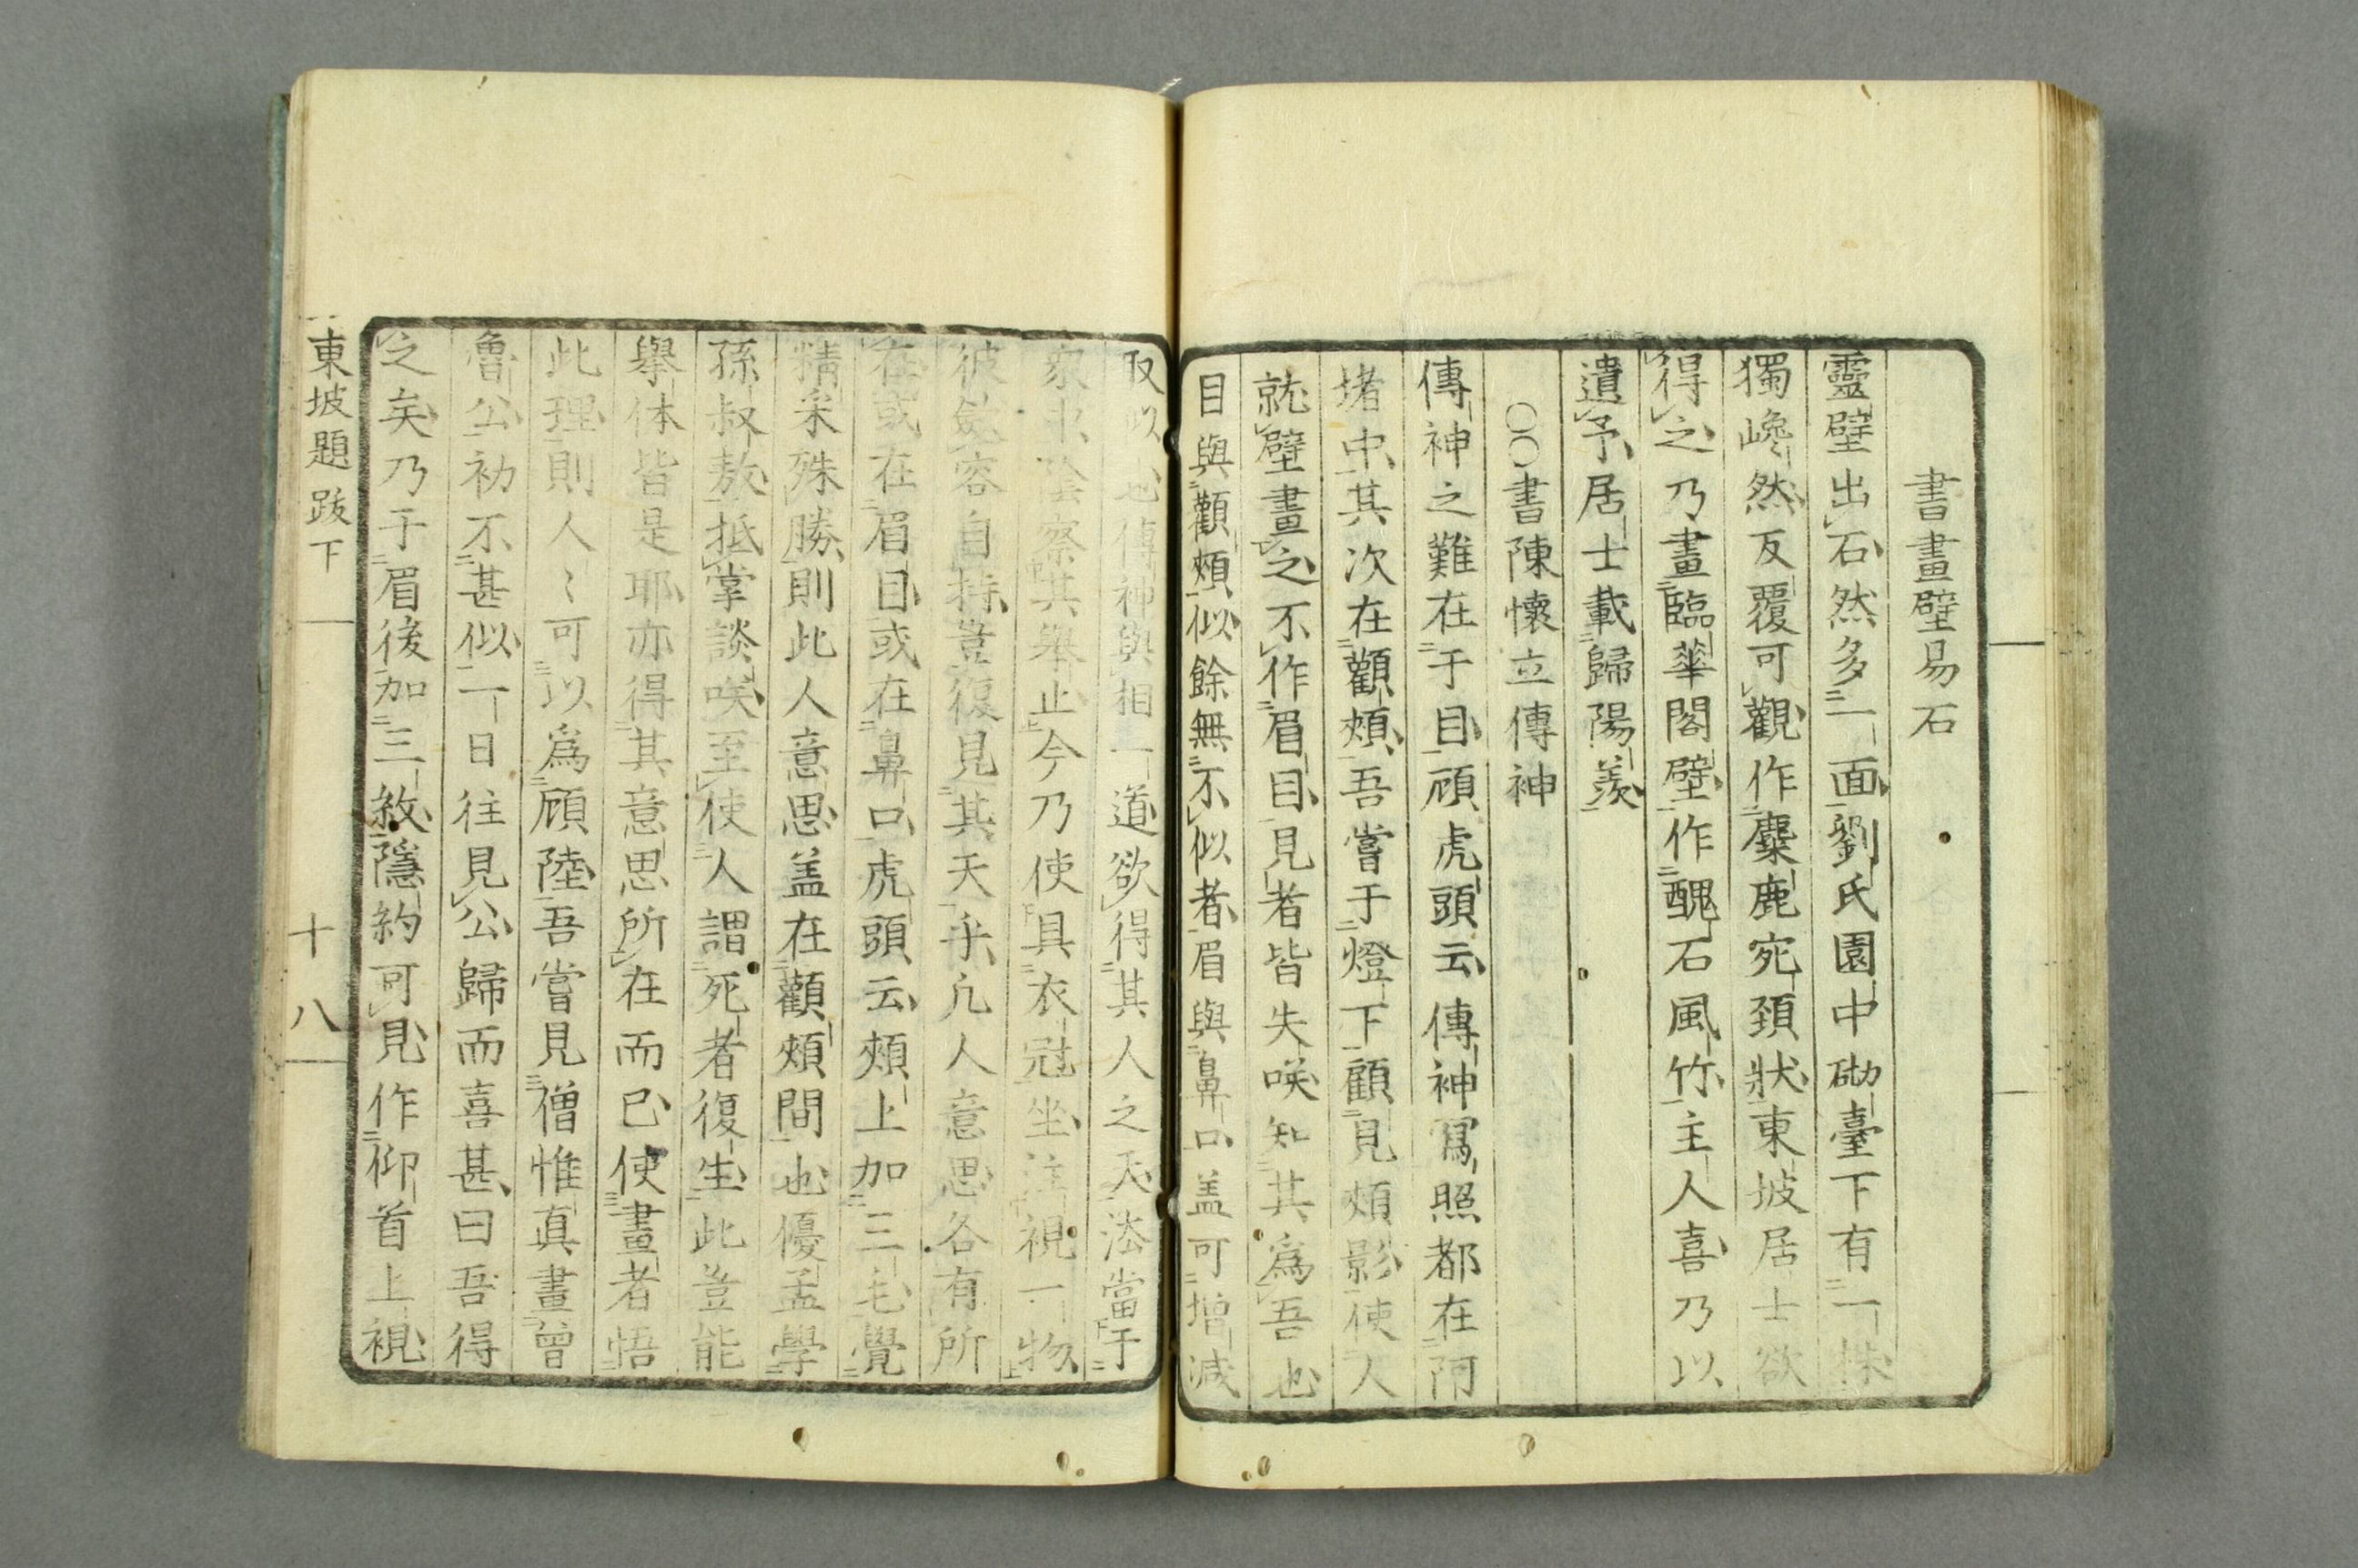 書畫壁易石
靈壁出石然多一面劉氏園中砌臺下有一株
獨巉然反覆可觀作麋鹿宛頸狀東坡居士欲
得之乃畫臨華閣壁作醜石風竹主人喜乃以
遺予居士載歸陽羨
○○書陳懷立傳神
傳神之難在于目顧虎頭云傳神寫照都在阿
堵中其次在顴頰吾嘗于燈下顧見頰影使人
就壁畫之不作眉目見者皆失咲知其為吾也
目與顴頰似餘無不似者眉與鼻口盖可增減
取似也傳神與相一道欲得其人之天法當于
衆中陰察其舉止今乃使具衣冠坐注視一物
彼斂容自持豈復見其天乎凢人意思各有所
在或在眉目或在鼻口虎頭云頰上加三毛覺
精采殊勝則此人意思盖在顴頰間也優孟學
孫叔敖抵掌談咲至使人謂死者復生此豈能
舉体皆是耶亦得其意思所在而已使畫者悟
此理則人〻可以為顧陸吾嘗見僧惟真畫曾
魯公初不甚似一日往見公歸而喜甚曰吾得
之矣乃于眉後加三紋隱約可見作仰首上視
東坡題跋下
十八